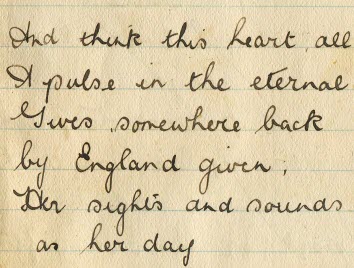 And think this heart, all
A pulse in the eternal
Gives somewhere back
by England given;
Her sights and sounds
as her day